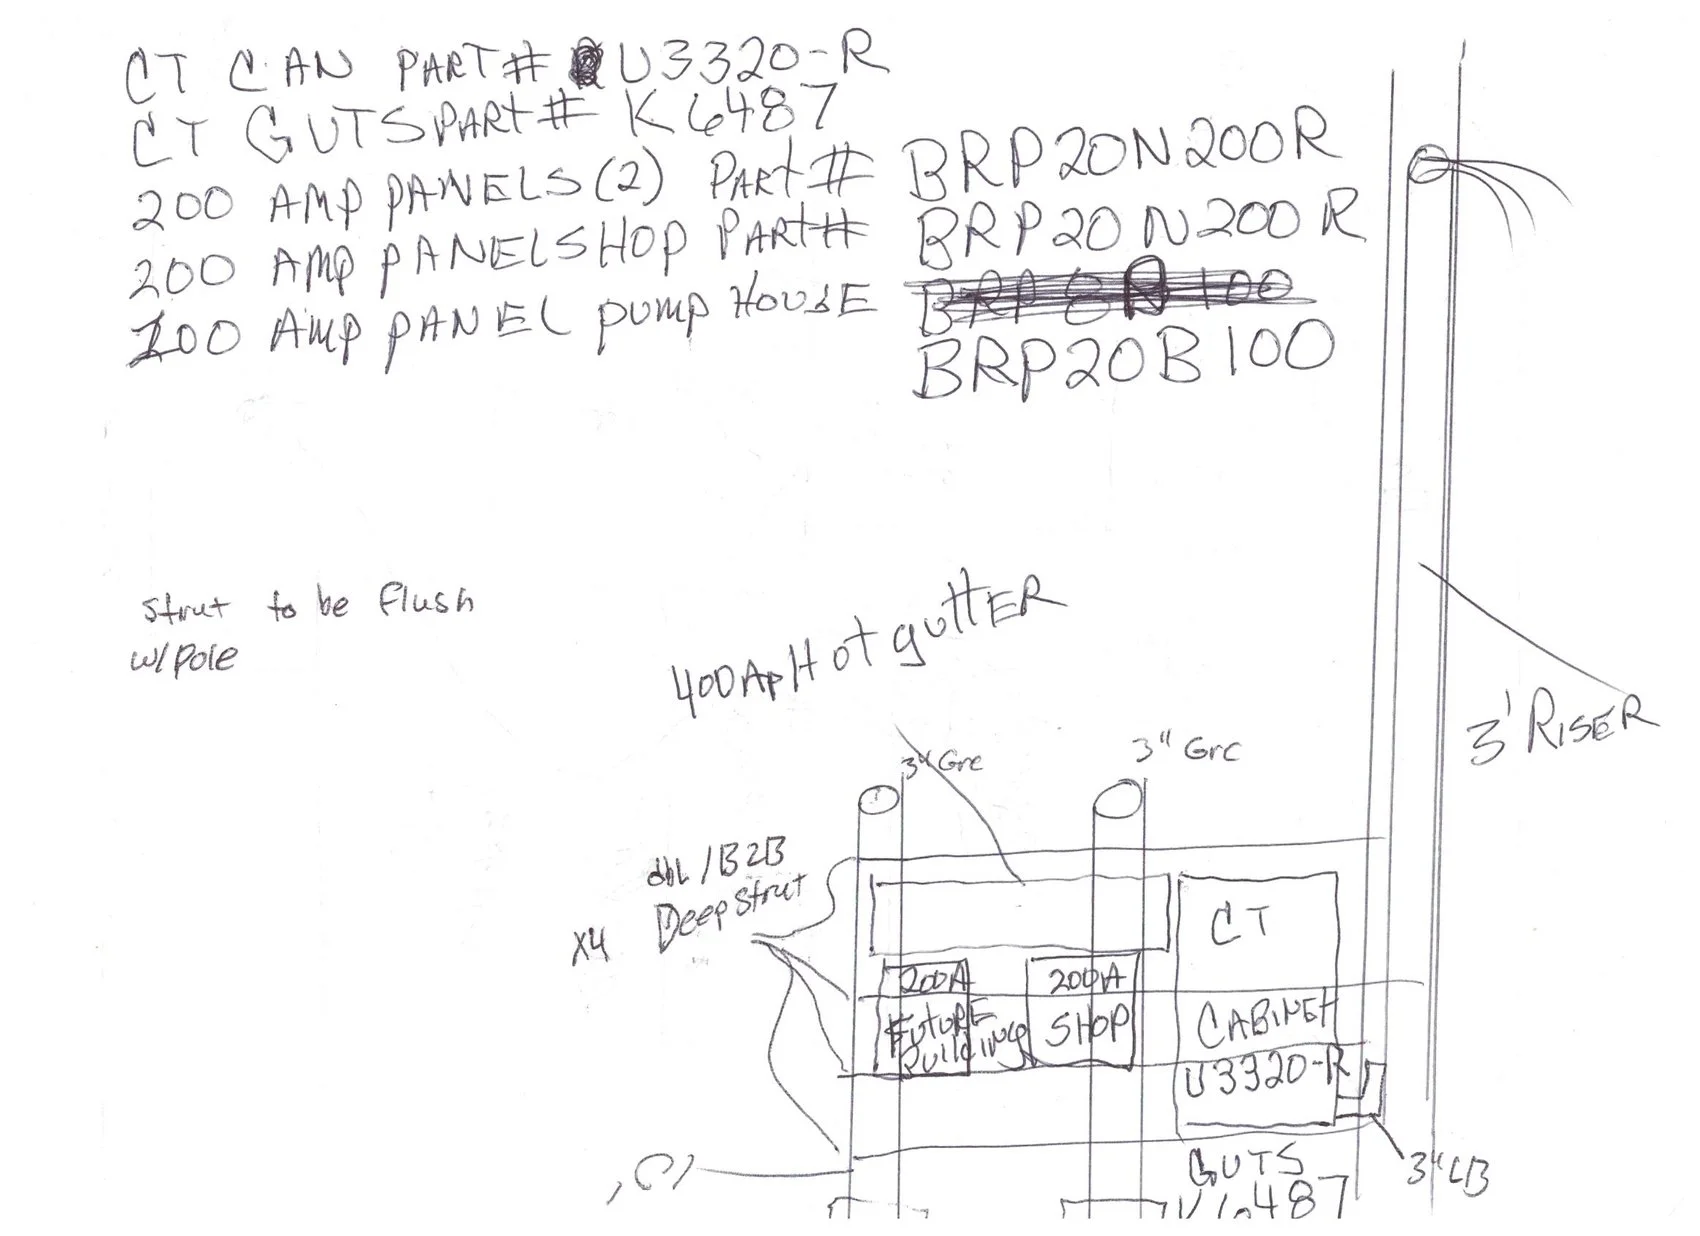 CT CAN PART# U3320-R
CT GUTS PART# K6487
200 AMP PANELS (2) PART# BRP20N200R
200 AMP PANEL SHOP PART# BRP20N200R
100 AMP PANEL PUMP HOUSE BRP20B100
strut to be flush
w/ pole
400Ap Hot guttER
3" Grc
3" Grc
3' RISER
dbL/B2B
Deep strut
X4
CT
CABINET
U3320-R
200A
FutuRE
Building
200A
SHOP
GUTS
K6487
3" LB